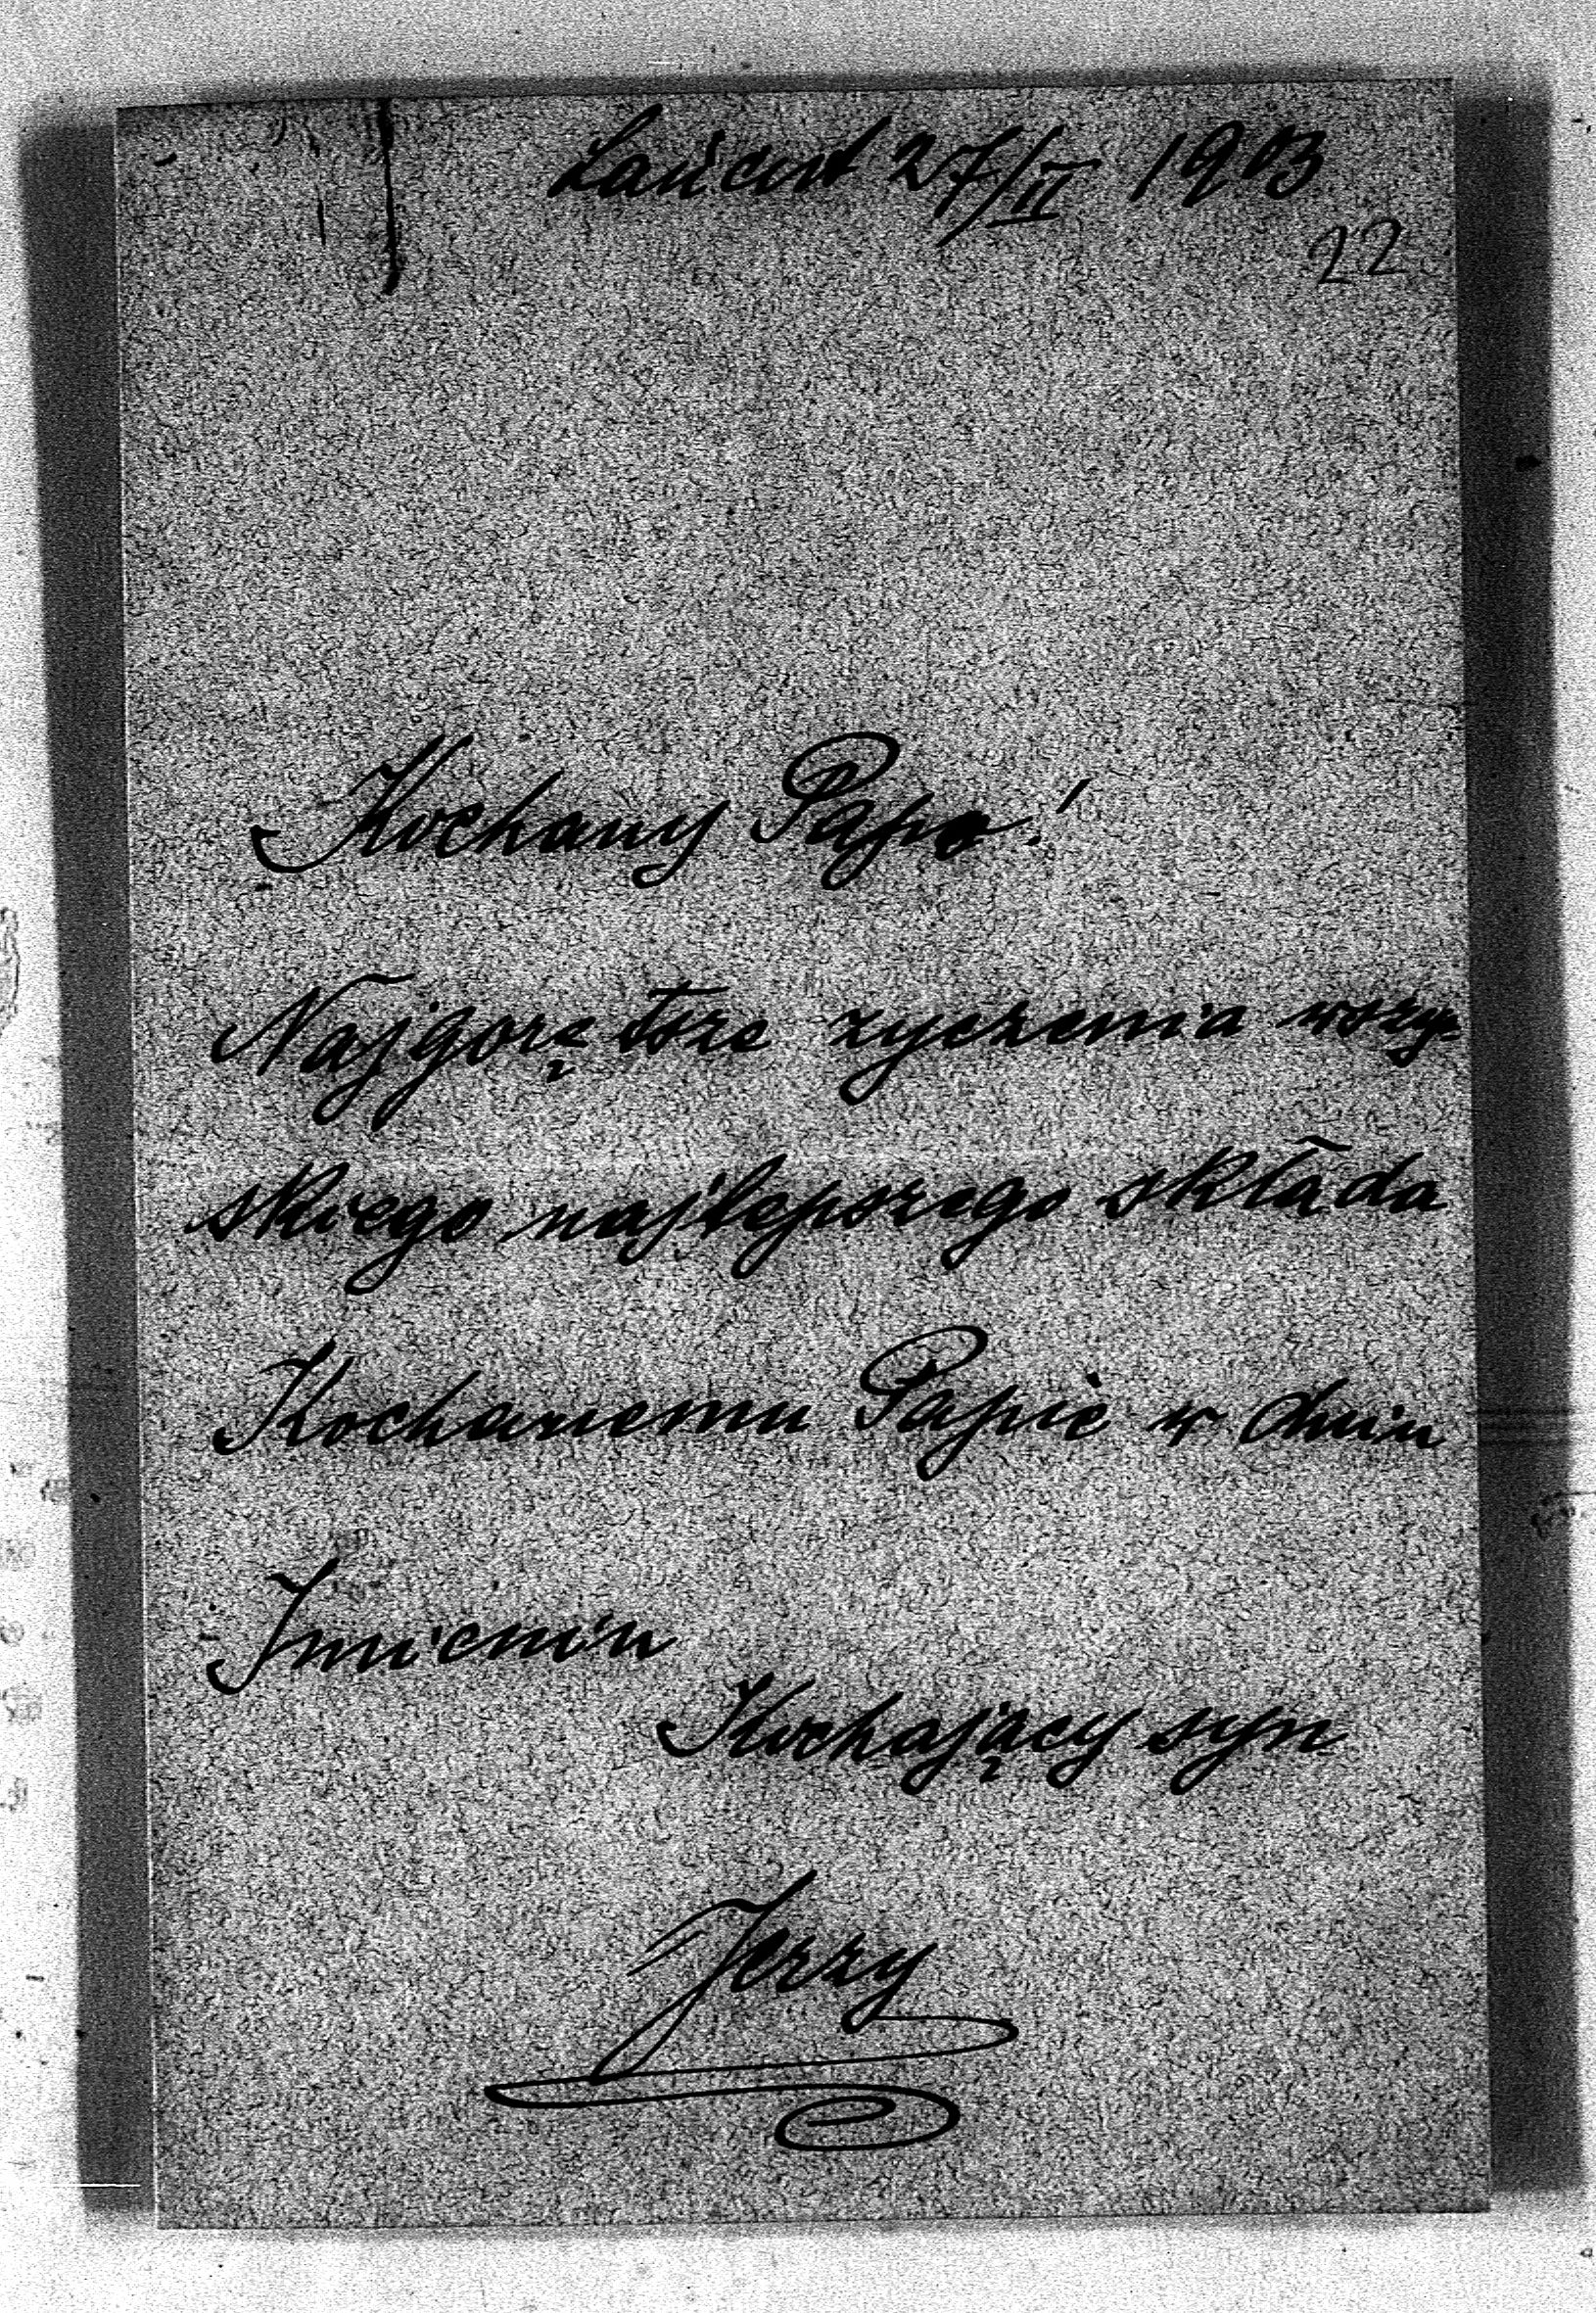 Łańcut 27/II 1903
22
Kochany Papo!
Najgorętsze zyczenia wszy-
skiego najlepszego składa
Kochanemu Papie w dniu
Imienin
Kochający syn
Jerzy